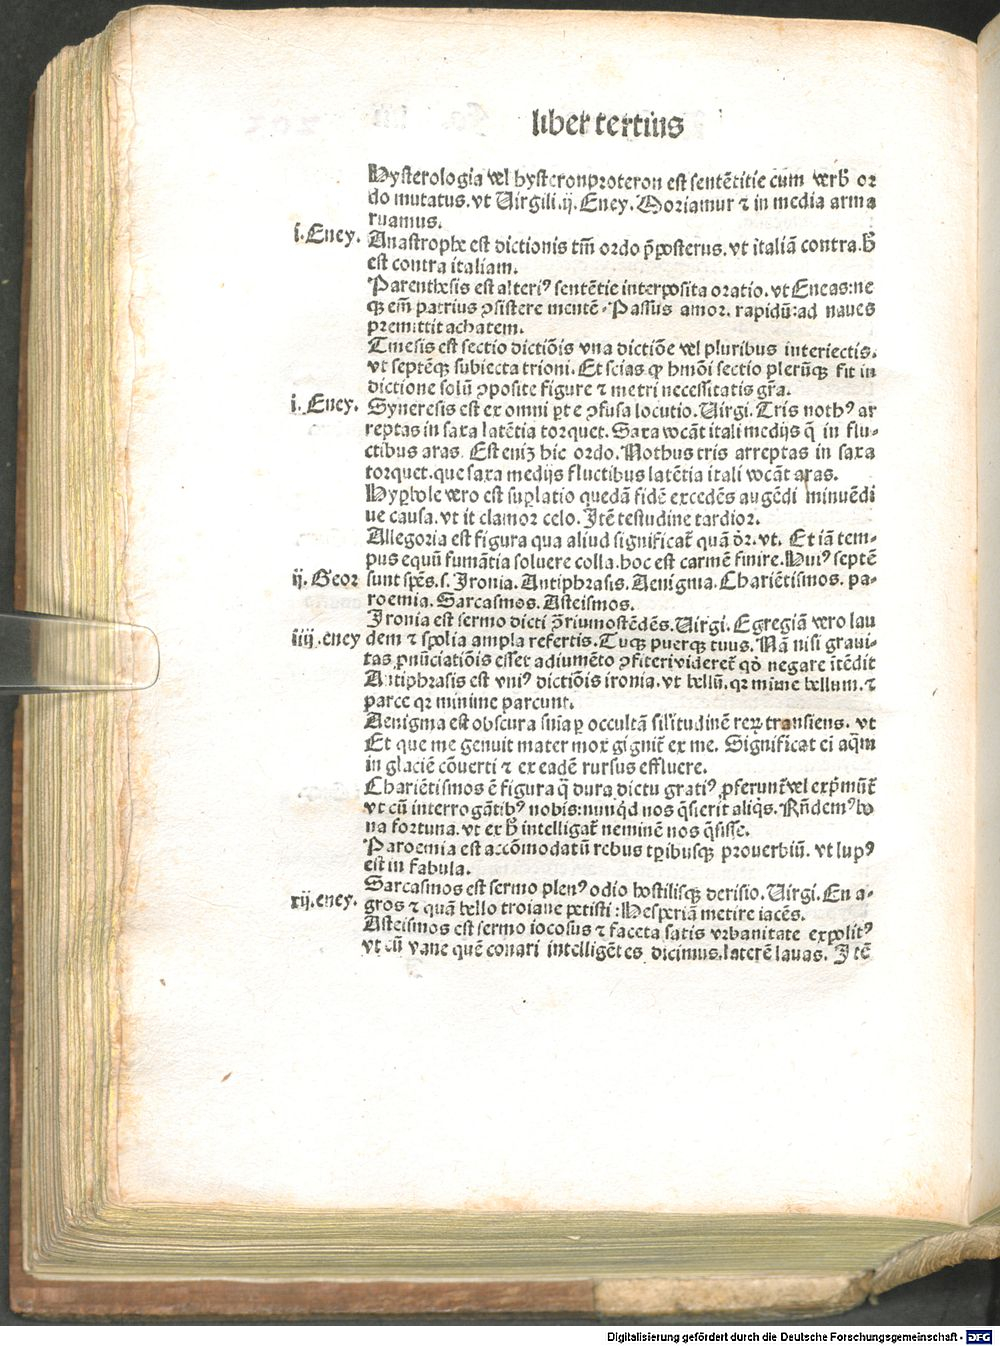 liber tertius
Hysterologia vel hysteronproteron est sentẽtitie cum verb̾ or
do mutatus. vt Uirgili. ij. Eney. Moriamur ⁊ in media arma
ruamus.
i. Eney.
Anastrophe est dictionis tm̃ ordo p̃posterus. vt italiã contra. h̾
est contra italiam.
Parenthesis est alteriꝰ sentẽtie interposita oratio. vt Eneas: ne
qꝫ em̃ patrius ꝯsistere mentẽ. Passus amor. rapidũ: ad naues
premittit achatem.
Tmesis est sectio dictiõis vna dictiõe vel pluribus interiectis.
vt septẽqꝫ subiecta trioni. Et scias qꝙ hmõi sectio plerũqꝫ fit in
dictione solũ ꝯposite figure ⁊ metri necessitatis gr̃a.
i. Eney.
Syneresis est ex omni ꝑte ꝯfusa locutio. Uirgi. Tris nothꝰ ar
reptas in saxa latẽtia torquet. Saxa vocãt itali medijs q̃ in flu-
ctibus aras. Est eniꝫ hic ordo. Nothus tris arreptas in saxa
torquet. que saxa medijs fluctibus latẽtia itali vocãt aras.
Hyꝑbole vero est suꝑlatio quedã fidẽ excedẽs augẽdi minuẽdi
ue causa. vt it clamor celo. Itẽ testudine tardior.
Allegoria est figura qua aliud significat̃ quã dr̃. vt. Et iã tem-
pus equũ fumãtia soluere colla. hoc est carmẽ finire. Huiꝰ septẽ
ij. Geor
sunt sp̃es. s. Ironia. Antiphrasis. Aenigma. Chariẽtismos. pa-
roemia. Sarcasmos. Asteismos.
Ironia est sermo dicti ꝯ̃riumostẽdẽs. Uirgi. Egregiã vero lau
iiij. eney
dem ⁊ spolia ampla refertis. Tuqꝫ puerqꝫ tuus. Nã nisi graui-
tas ꝓnũciatiõis esset adiumẽto ꝯfiteri videret̃ qd̾ negare ĩtẽdit
Antiphrasis est vniꝰ dictiõis ironia. vt bellũ. qꝛ mĩme bellum. ⁊
parce qꝛ minime parcunt.
Aenigma est obscura sñia ꝑ occultã sil̃itudinẽ reꝝ transiens. vt
Et que me genuit mater mox gignit̃ ex me. Significat ei aq̃m
in glaciẽ cõuerti ⁊ ex eadẽ rursus effluere.
Chariẽtismos ẽ figura q̃ dura dictu gratiꝰ ꝓferunt̃ vel exp̃mũt̃
vt cũ interrogãtibꝰ nobis: nunq̃d nos q̃sierit aliq̃s. Rñdemꝰ bo
na fortuna. vt ex h̾ intelligat̃ neminẽ nos q̃sisse.
Paroemia est accõmodatũ rebus tꝑibusqꝫ prouerbiũ. vt lupꝰ
est in fabula.
Sarcasmos est sermo plenꝰ odio hostiliqꝫ derisio. Uirgi. En a-
xij. eney.
gros ⁊ quã bello troiane petisti: Hesperiã metire iacẽs.
Asteismos est sermo iocosus ⁊ faceta satis vrbanitate expolitꝰ
vt cũ vane quẽ conari intelligẽtes dicimus. laterẽ lauas. Itẽ
Digitalisierung gefördert durch die Deutsche Forschungsgemeinschaft - DFG